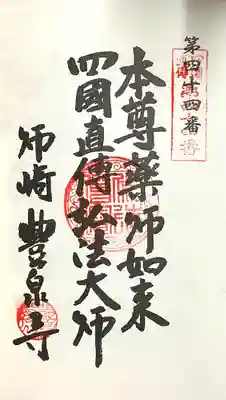 第四十四番
本尊薬师如来
四國直傳弘法大师
师崎 豊泉寺